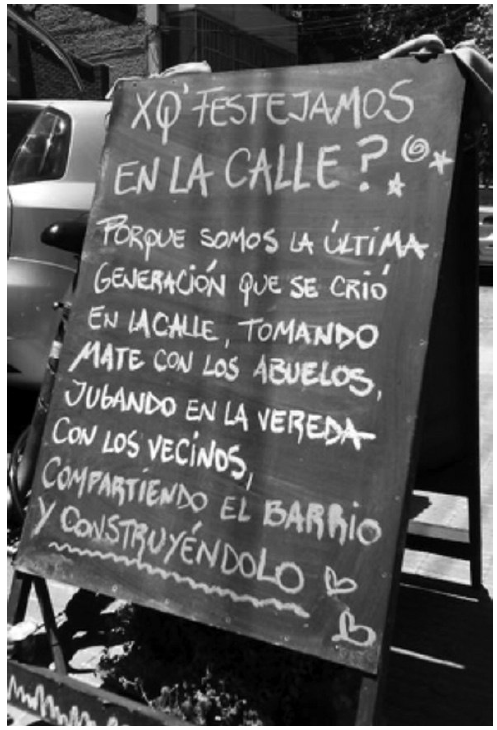 XQ' FESTEJAMOS
EN LA CALLE?
PORQUE SOMOS LA ÚLTIMA
GENERACIÓN QUE SE CRIÓ
EN LA CALLE, TOMANDO
MATE CON LOS ABUELOS,
JUGANDO EN LA VEREDA
CON LOS VECINOS,
COMPARTIENDO EL BARRIO
Y CONSTRUYÉNDOLO